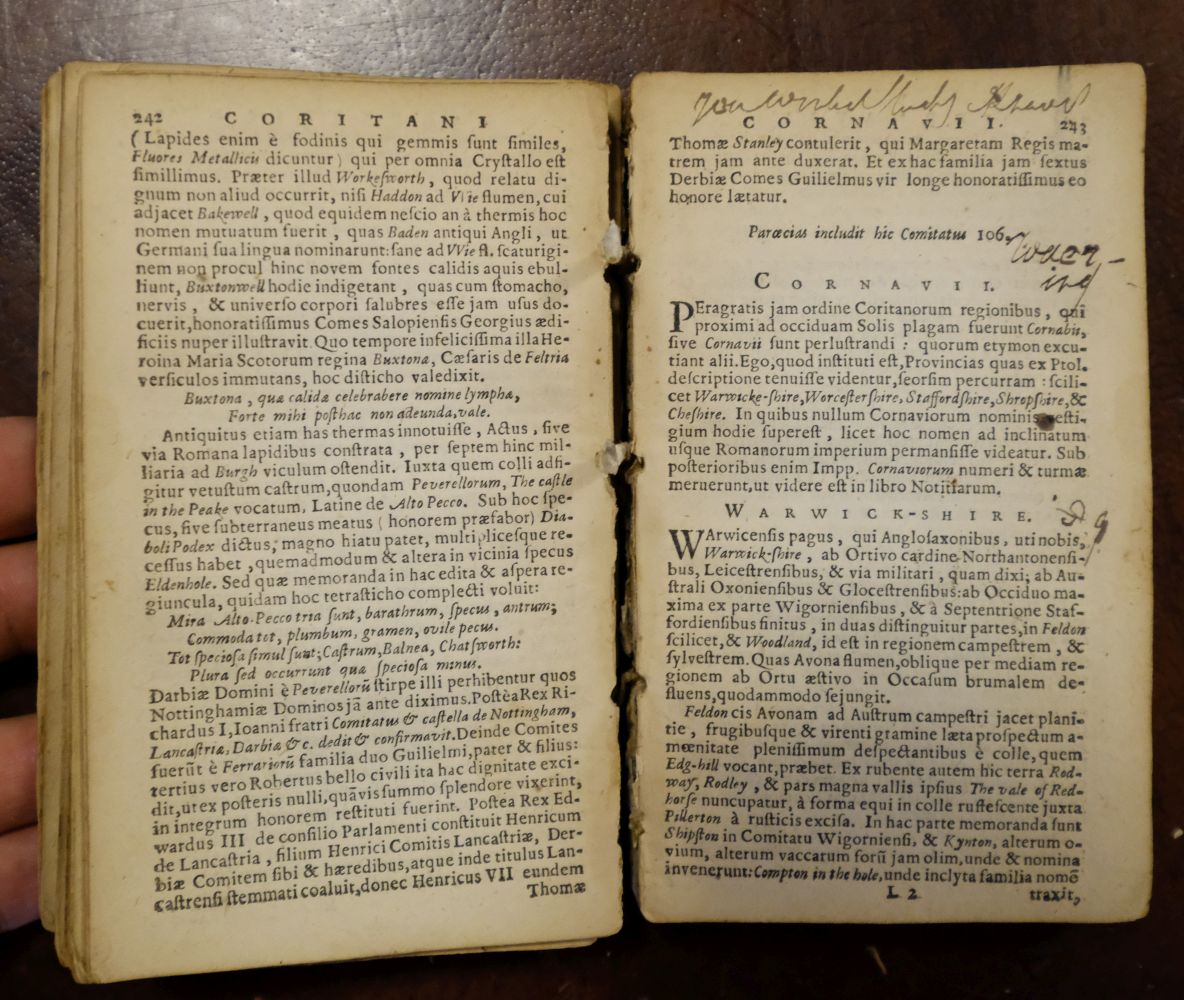 242 CORITANI
(Lapides enim è fodinis qui gemmis sunt similes,
Fluores Metallicis dicuntur) qui per omnia Crystallo est
simillimus. Præter illud Workesworth, quod relatu di-
gnum non aliud occurrit, nisi Haddon ad Wie flumen, cui
adjacet Bakewell, quod equidem nescio an à thermis hoc
nomen mutuatum fuerit, quas Baden antiqui Angli, ut
Germani sua lingua nominarunt: sane ad VVie fl. scaturigi-
nem non procul hinc novem fontes calidis aquis ebul-
liunt, Buxtonwell hodie indigetant, quas cum stomacho,
nervis, & universo corpori salubres esse jam usus do-
cuerit, honoratissimus Comes Salopiensis Georgius ædi-
ficiis nuper illustravit. Quo tempore infelicissima illa He-
roina Maria Scotorum regina Buxtona, Cæsaris de Feltria
versiculos immutans, hoc disticho valedixit.
Buxtona, quæ calidæ celebrabere nomine lymphæ,
Forte mihi posthac non adeunda, vale.
Antiquitus etiam has thermas innotuisse, Actus, sive
via Romana lapidibus constrata, per septem hinc mil-
liaria ad Burgh viculum ostendit. Iuxta quem colli adfi-
gitur vetustum castrum, quondam Peverellorum, The castle
in the Peake vocatum, Latine de Alto Pecco. Sub hoc spe-
cus, sive subterraneus meatus (honorem præfabor) Dia-
boli Podex dictus, magno hiatu patet, multiplicesque re-
cessus habet, quemadmodum & altera in vicinia specus
Eldenhole. Sed quæ memoranda in hac edita & aspera re-
giuncula, quidam hoc tetrasticho complecti voluit:
Mira Alto-Pecco tria sunt, barathrum, specus, antrum;
Commoda tot, plumbum, gramen, ovile pecus.
Tot speciosa simul sunt; Castrum, Balnea, Chatsworth:
Plura sed occurrunt quæ speciosa minus.
Darbiæ Domini è Peverellorū stirpe illi perhibentur quos
Nottinghamiæ Dominos jā ante diximus. Postèa Rex Ri-
chardus I, Ioanni fratri Comitatus & castella de Nottingham,
Lancastriæ, Darbiæ &c. dedit & confirmavit. Deinde Comites
fuerūt è Ferrariorū familia duo Guilielmi, pater & filius:
tertius vero Robertus bello civili ita hac dignitate exci-
dit, ut ex posteris nulli, quāvis summo splendore vixerint,
in integrum honorem restituti fuerint. Postea Rex Ed-
wardus III de consilio Parlamenti constituit Henricum
de Lancastria, filium Henrici Comitis Lancastriæ, Der-
biæ Comitem sibi & hæredibus, atque inde titulus Lan-
castrensi stemmati coaluit, donec Henricus VII eundem
Thomæ
CORNAVII. 243
Thomæ Stanley contulerit, qui Margaretam Regis ma-
trem jam ante duxerat. Et ex hac familia jam sextus
Derbiæ Comes Guilielmus vir longe honoratissimus eo
honore lætatur.
Parœcias includit hic Comitatus 106.
CORNAVII.
PEragratis jam ordine Coritanorum regionibus, qui
proximi ad occiduam Solis plagam fuerunt Cornabii,
sive Cornavii sunt perlustrandi: quorum etymon excu-
tiant alii. Ego, quod instituti est, Provincias quas ex Ptol.
descriptione tenuisse videntur, seorsim percurram: scili-
cet Warwicke-shire, Worcestershire, Staffordshire, Shropshire, &
Cheshire. In quibus nullum Cornaviorum nominis vesti-
gium hodie superest, licet hoc nomen ad inclinatum
usque Romanorum imperium permansisse videatur. Sub
posterioribus enim Impp. Cornaviorum numeri & turmæ
meruerunt, ut videre est in libro Notitiarum.
WARWICK-SHIRE.
WArwicensis pagus, qui Anglosaxonibus, uti nobis,
Warwick-shire, ab Ortivo cardine Northantonensi-
bus, Leicestrensibus, & via militari, quam dixi; ab Au-
strali Oxoniensibus & Glocestrensibus: ab Occiduo ma-
xima ex parte Wigorniensibus, & à Septentrione Staf-
fordiensibus finitus, in duas distinguitur partes, in Feldon
scilicet, & Woodland, id est in regionem campestrem, &
sylvestrem. Quas Avona flumen, oblique per mediam re-
gionem ab Ortu æstivo in Occasum brumalem de-
fluens, quodammodo sejungit.
Feldon cis Avonam ad Austrum campestri jacet plani-
tie, frugibusque & virenti gramine læta prospectum a-
mœnitate plenissimum despectantibus è colle, quem
Edg-hill vocant, præbet. Ex rubente autem hic terra Rod-
way, Rodley, & pars magna vallis ipsius The vale of Red-
horse nuncupatur, à forma equi in colle rustescente juxta
Pillerton à rusticis excisa. In hac parte memoranda sunt
Shipston in Comitatu Wigorniensi, & Kynton, alterum o-
vium, alterum vaccarum forū jam olim, unde & nomina
invenerunt: Compton in the hole, unde inclyta familia nomē
L 2 traxit,